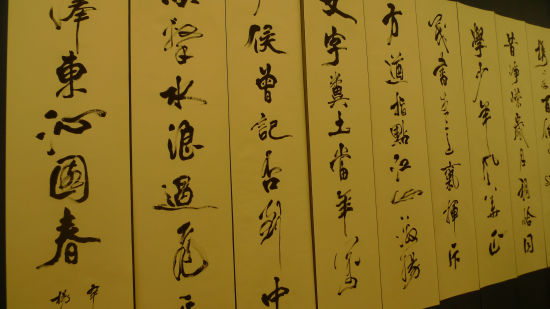 携来百
昔崢嶸歲月稠恰同
學少年風華正
茂書生意氣揮斥
方遒指點江山激揚
文字糞土當年萬
戶侯曾記否到中
流擊水浪遏飛舟
澤東沁園春